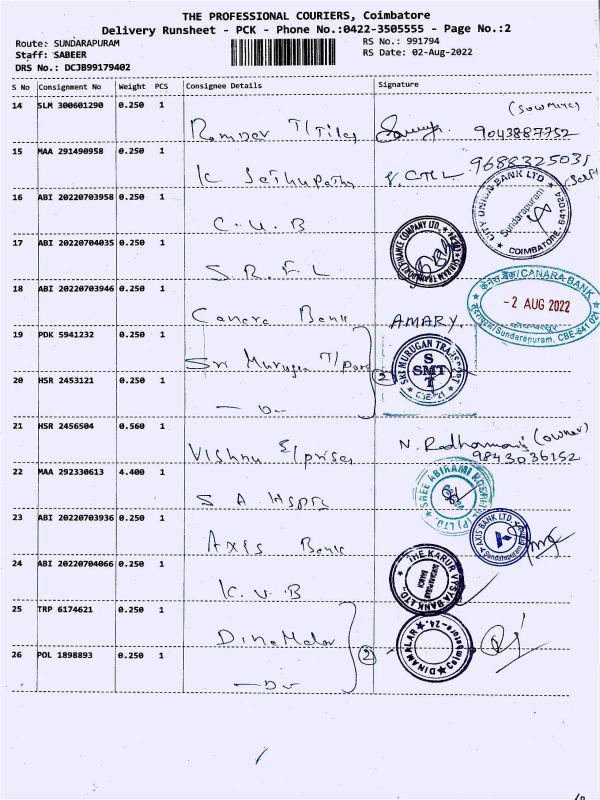 THE PROFESSIONAL COURIERS, Coimbatore
Delivery Runsheet - PCK - Phone No.:0422-3505555 - Page No.:2
Route: SUNDARAPURAM
RS No.: 991794
Staff: SABEER
RS Date: 02-Aug-2022
DRS No.: DCJB99179402
S No Consignment No Weight PCS Consignee Details Signature
14 SLM 300601290 0.250 1
T/Tiles 9043887752
15 MAA 291490958 0.250 1
K Sethupathy 9688325031
16 ABI 20220703958 0.250 1
C.U.B
CITY UNION BANK LTD.
Sundarapuram
COIMBATORE-641024
17 ABI 20220704035 0.250 1
S.R.F.L
18 ABI 20220703946 0.250 1
Canara Bank AMARY.
केनरा बैंक/CANARA BANK
- 2 AUG 2022
Sundarapuram, CBE-641 021
19 PDK 5941232 0.250 1
Sri Murugan T/port
SRI MURUGAN TRANSPORT
S
SMT
T
CBE-21
2
20 HSR 2453121 0.250 1
— Do —
21 HSR 2456504 0.560 1
Vishnu E/prises N. Radhamani (owner)
9843036152
22 MAA 292330613 4.400 1
S A Hsptl
SREE ABIRAMI HOSPITAL (P) LTD.
23 ABI 20220703936 0.250 1
Axis Bank
AXIS BANK LTD
Sundarapuram
24 ABI 20220704066 0.250 1
K.V.B
THE KARUR VYSYA BANK LTD.
SUNDARAPURAM
BRANCH
25 TRP 6174621 0.250 1
Dinamalar
DINAMALAR
Coimbatore-24.
2
26 POL 1898893 0.250 1
— Do